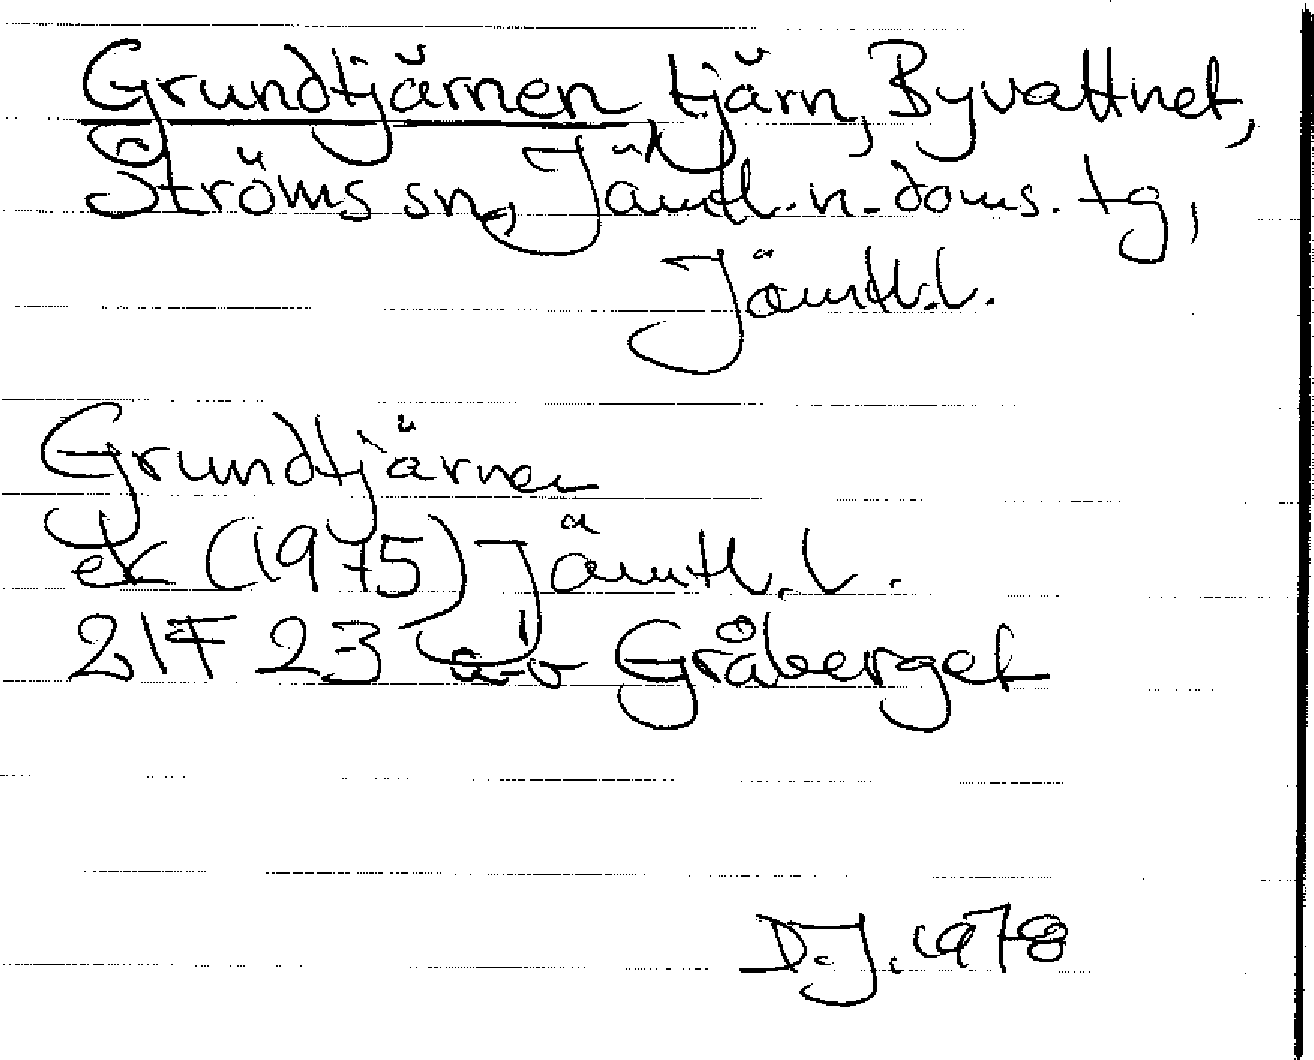 Grundtjärnen, tjärn, Byvattnet,
Ströms sn, Jämtl. n. doms. tg,
Jämtl.l.
Grundtjärnen
ek (1975) Jämtl. l.
21F 23 a-b Gråberget
D.J. 1978